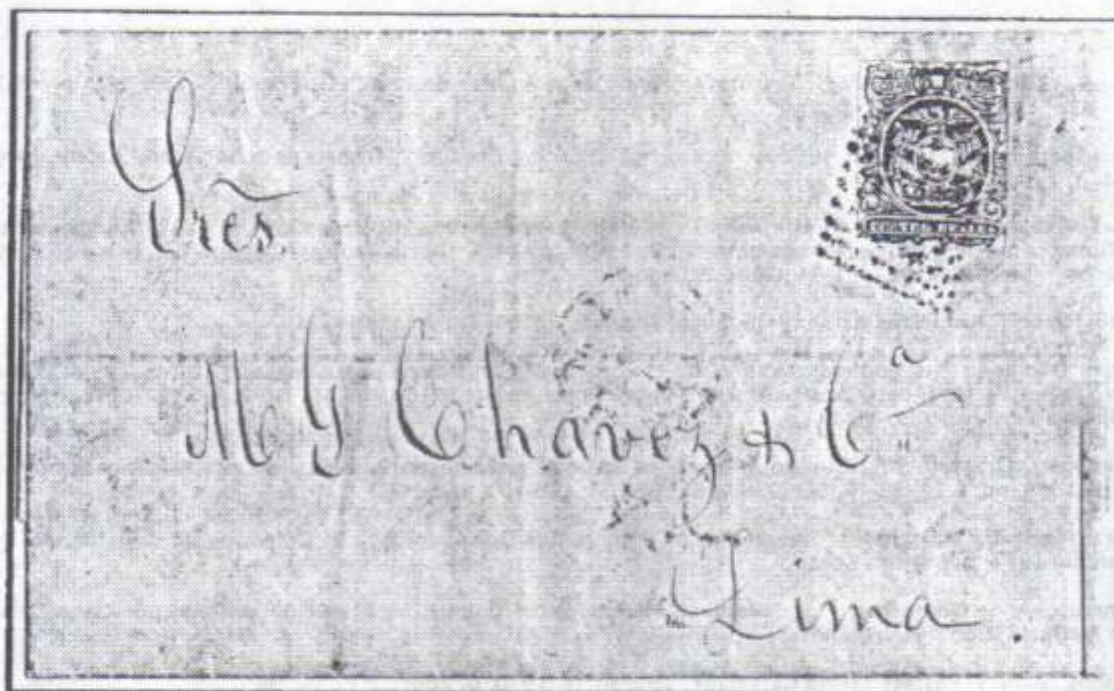 Sres.
M G Chavez & Cª
Lima.